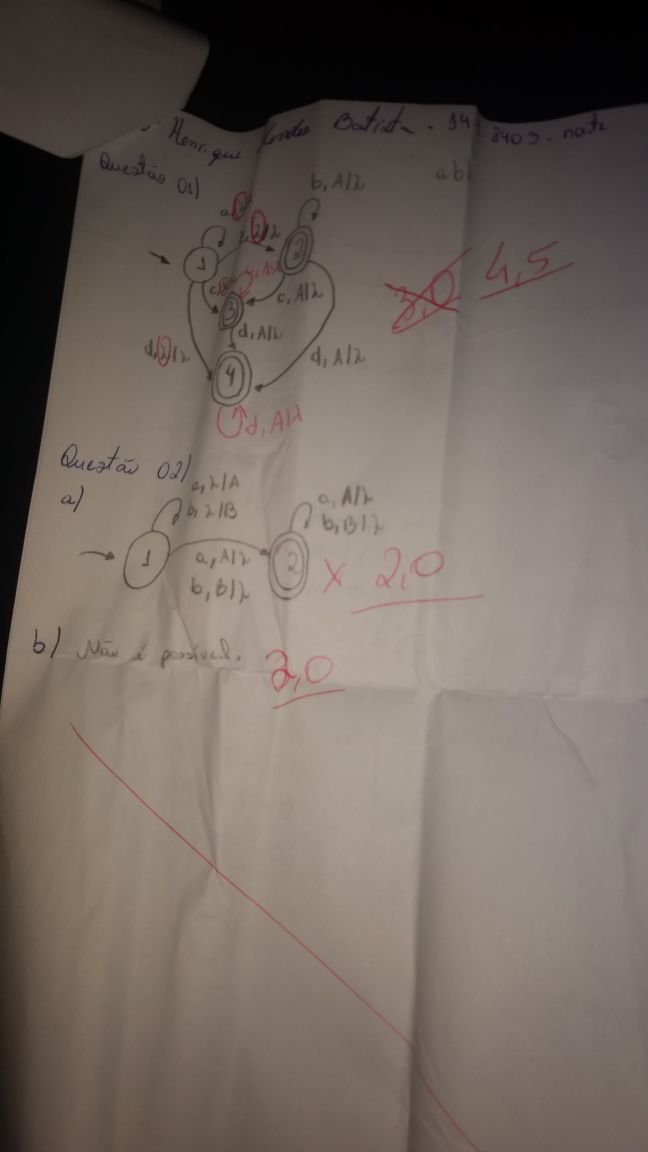 Henrique Mendes Batista - 14 . 8403 - noite
Questão 01)
ab
b, A/λ
1
2
c, A/λ
3
4,5
3,0
d, A/λ
d, λ/λ
d, A/λ
4
d, A/λ
Questão 02)
a)
a, λ/A
b, λ/B
a, A/λ
b, B/λ
1
2
a, A/λ
b, B/λ
x 2,0
b) Não é possível. 2,0